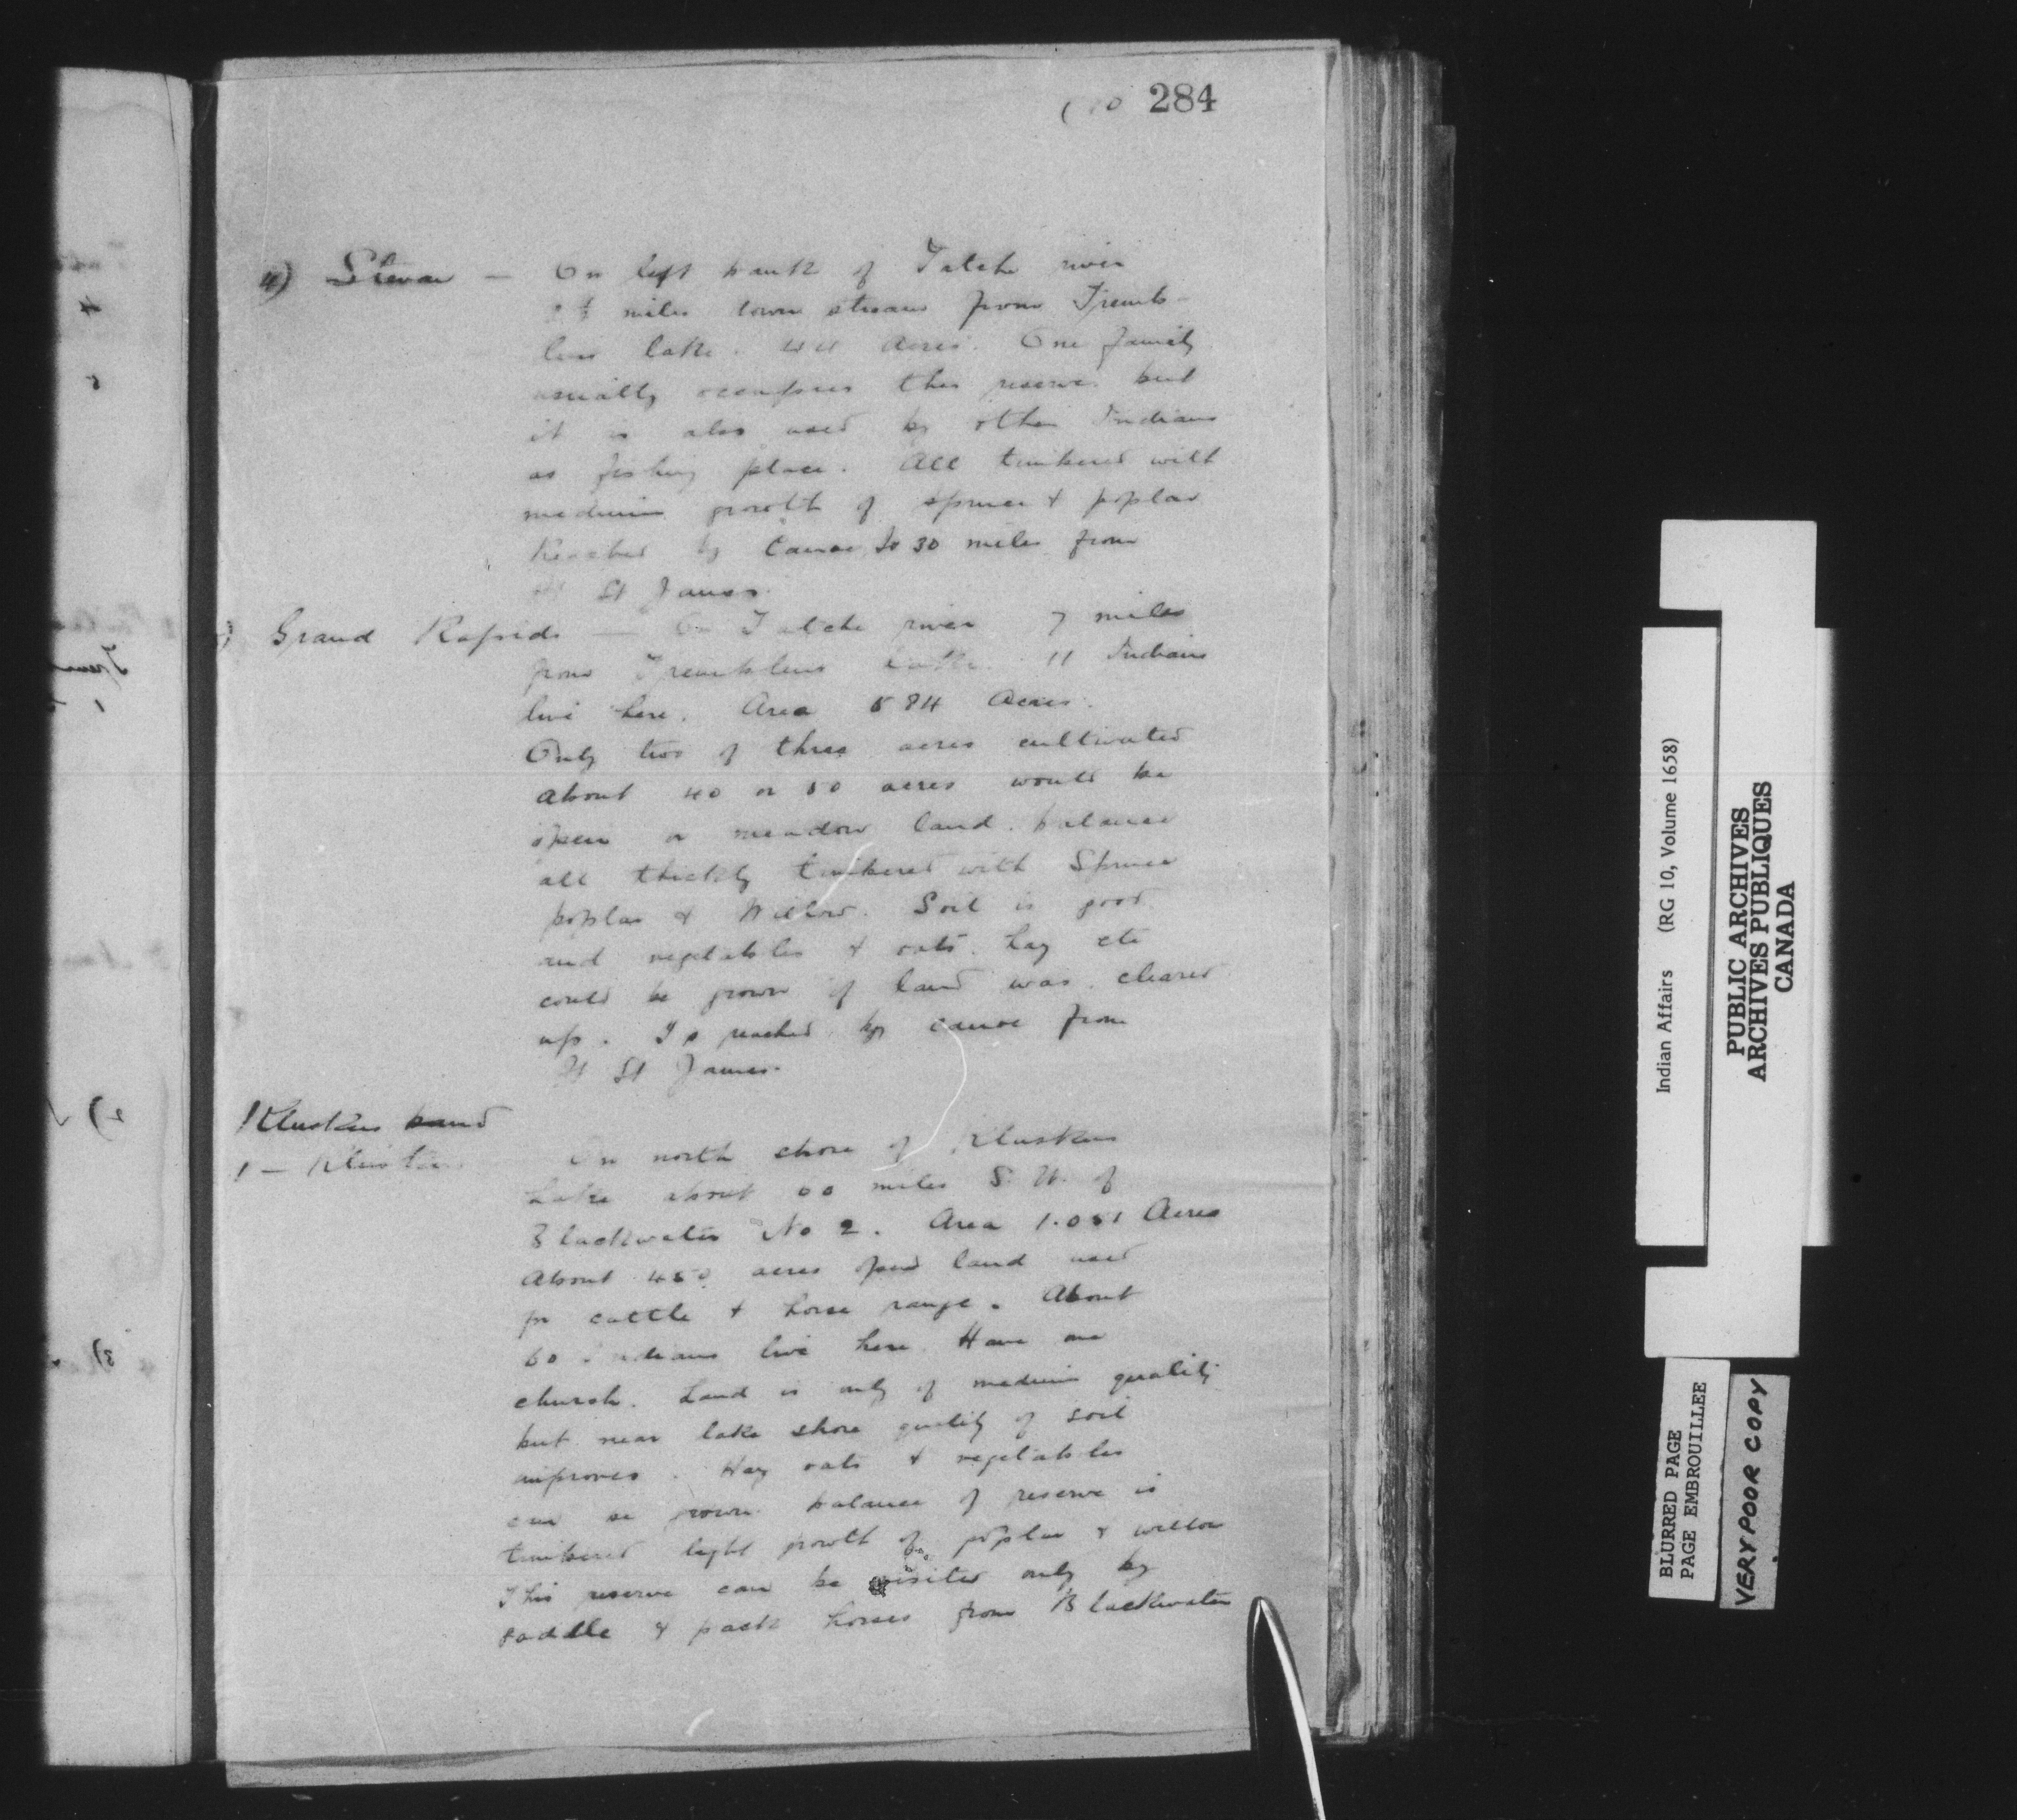 284
4) Stevan — On left bank of Tatche river
miles down stream from Tremb-
leur lake. Acres. One family
usually occupies this reserve but
it is also used by other Indians
as fishing place. All timbered with
medium growth of spruce & poplar
Reached by Canoe, 30 miles from
St James.
Grand Rapids — On Tatche river 7 miles
from Trembleur lake. 11 Indians
live here. Area 584 Acres.
Only two of three acres cultivated
About 40 or 50 acres would be
open or meadow land. balance
all thickly timbered with Spruce
poplar & Willow. Soil is good
and vegetables & oats. hay etc
could be grown if land was cleared
up. Is reached by canoe from
Ft St James.
Kluskus band
1 — Kluskus On north shore of Kluskus
Lake about miles S. W. of
Blackwater No 2. Area Acres
About 450 acres open land used
for cattle & horse range. About
60 Indians live here. Have one
church. Land is only of medium quality
but near lake shore quality of soil
improves. Hay oats & vegetables
can be grown balance of reserve is
timbered light growth of poplar & willow
This reserve can be visited only by
saddle & pack horses from Blackwater
Indian Affairs (RG 10, Volume 1658)
PUBLIC ARCHIVES
ARCHIVES PUBLIQUES
CANADA
BLURRED PAGE
PAGE EMBROUILLEE
VERY POOR COPY